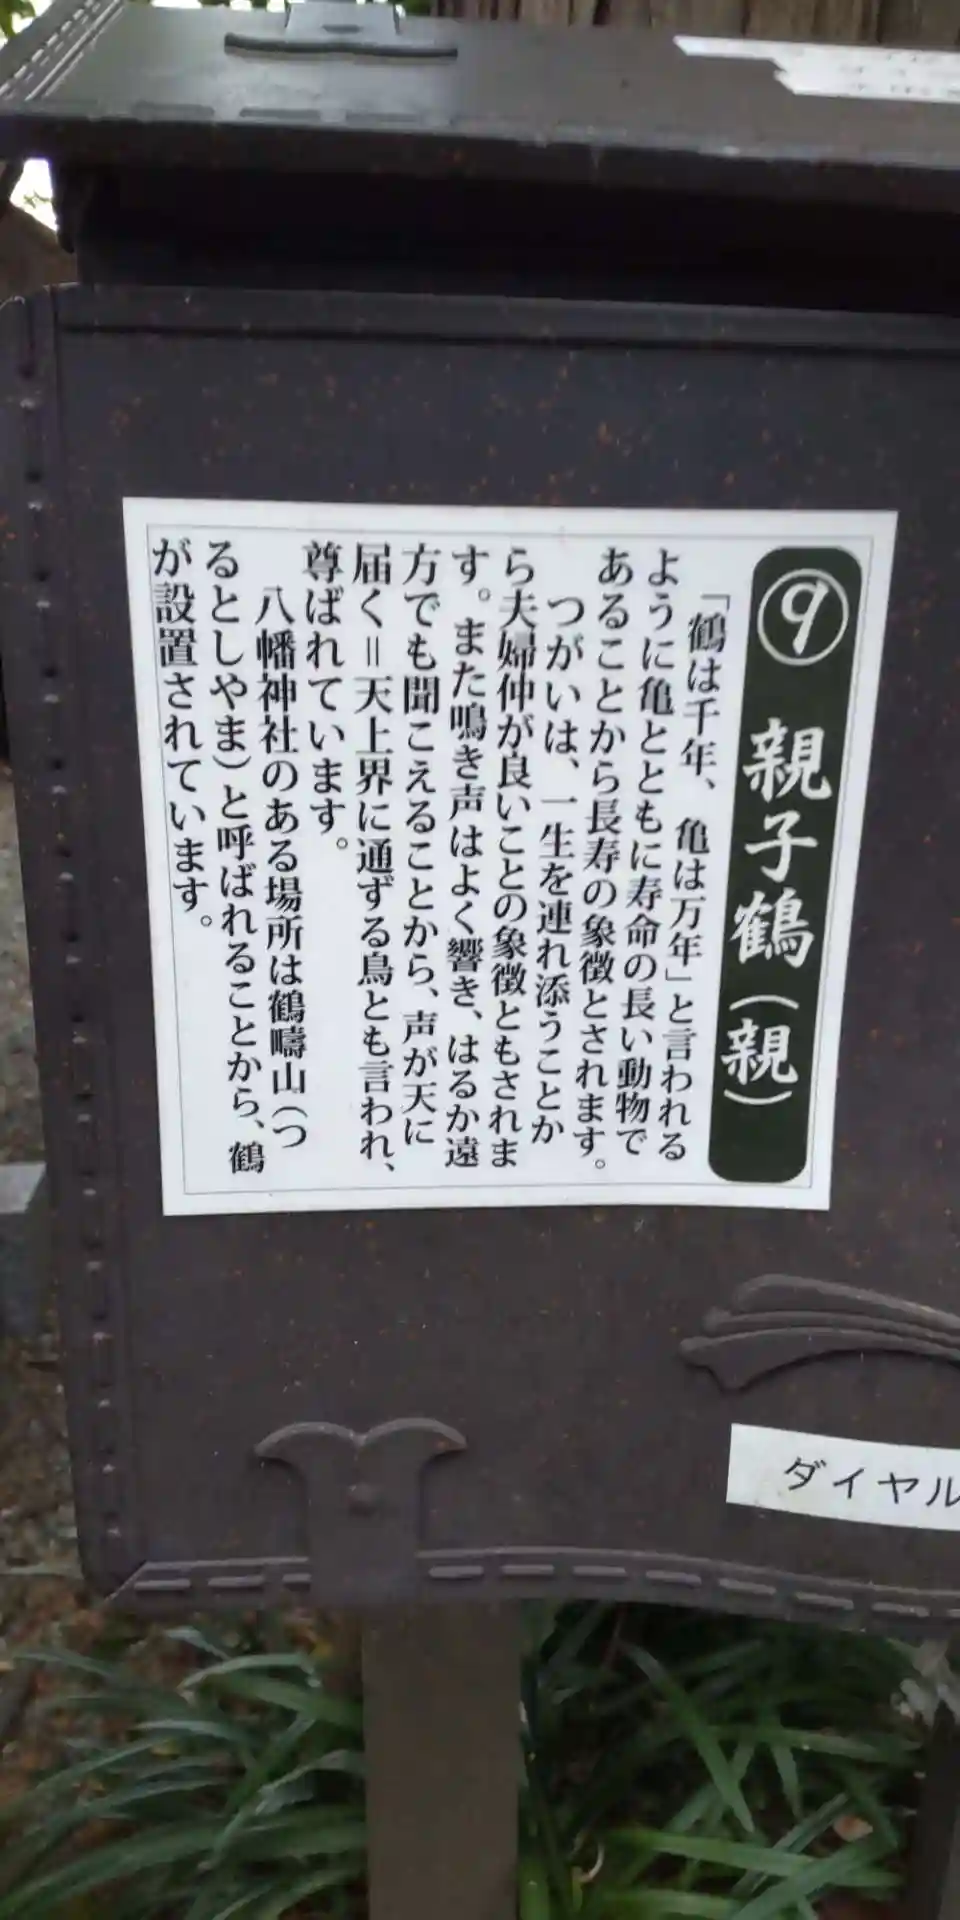 ⑨ 親子鶴（親）
「鶴は千年、亀は万年」と言われる
ように亀とともに寿命の長い動物で
あることから長寿の象徴とされます。
つがいは、一生を連れ添うことか
ら夫婦仲が良いことの象徴ともされま
す。また鳴き声はよく響き、はるか遠
方でも聞こえることから、声が天に
届く＝天上界に通ずる鳥とも言われ、
尊ばれています。
八幡神社のある場所は鶴嶹山（つ
るとしやま）と呼ばれることから、鶴
が設置されています。
ダイヤル